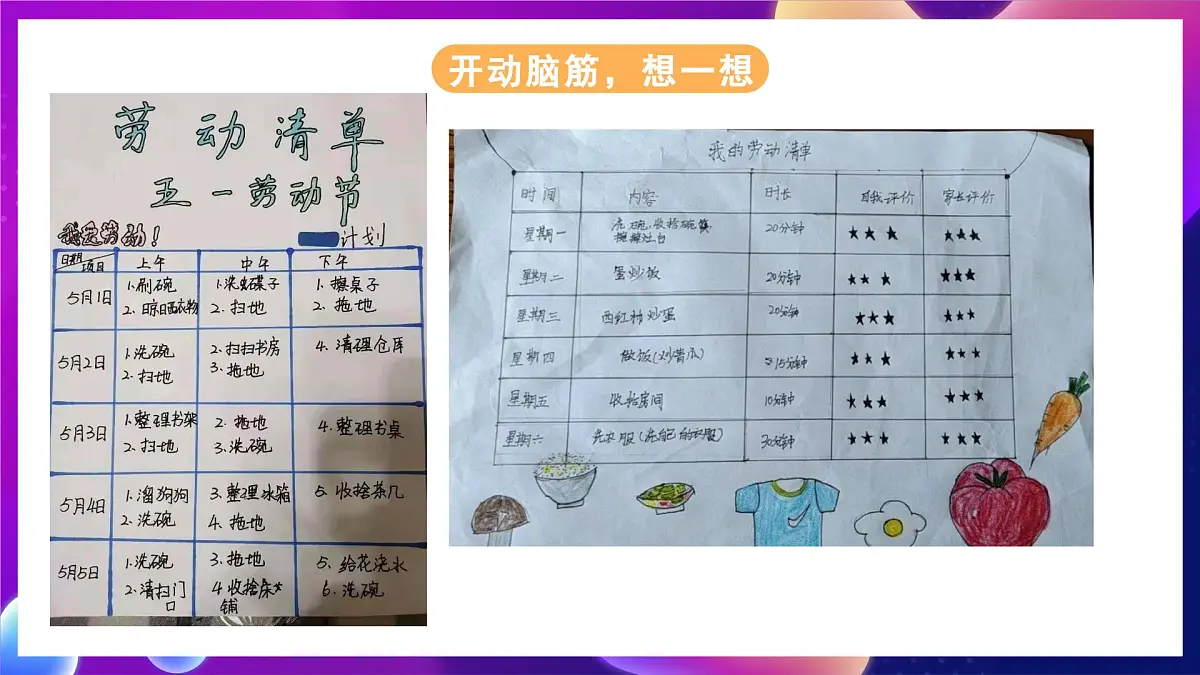 开动脑筋，想一想
劳动清单
五一劳动节
我爱劳动！
计划
日期 项目 上午 中午 下午
5月1日 1.刷碗 1.洗碟子 1.擦桌子
2.晾晒衣物 2.扫地 2.拖地
5月2日 1.洗碗 2.扫扫书房 4.清理仓库
2.扫地 3.拖地
5月3日 1.整理书架 2.拖地 4.整理书桌
2.扫地 3.洗碗
5月4日 1.溜狗狗 3.整理冰箱 5.收捨茶几
2.洗碗 4.拖地
5月5日 1.洗碗 3.拖地 5.给花浇水
2.清扫门口 4.收捨床铺 6.洗碗
我的劳动清单
时间 内容 时长 自我评价 家长评价
星期一 洗碗.收拾碗筷 20分钟 ★★★ ★★★
擦擦灶台
星期二 蛋炒饭 20分钟 ★★★ ★★★
星期三 西红柿炒蛋 20分钟 ★★★ ★★★
星期四 做饭(炒黄瓜) 15分钟 ★★★ ★★★
星期五 收拾房间 10分钟 ★★★ ★★★
星期六 洗衣服(洗自己的衣服) 30分钟 ★★★ ★★★